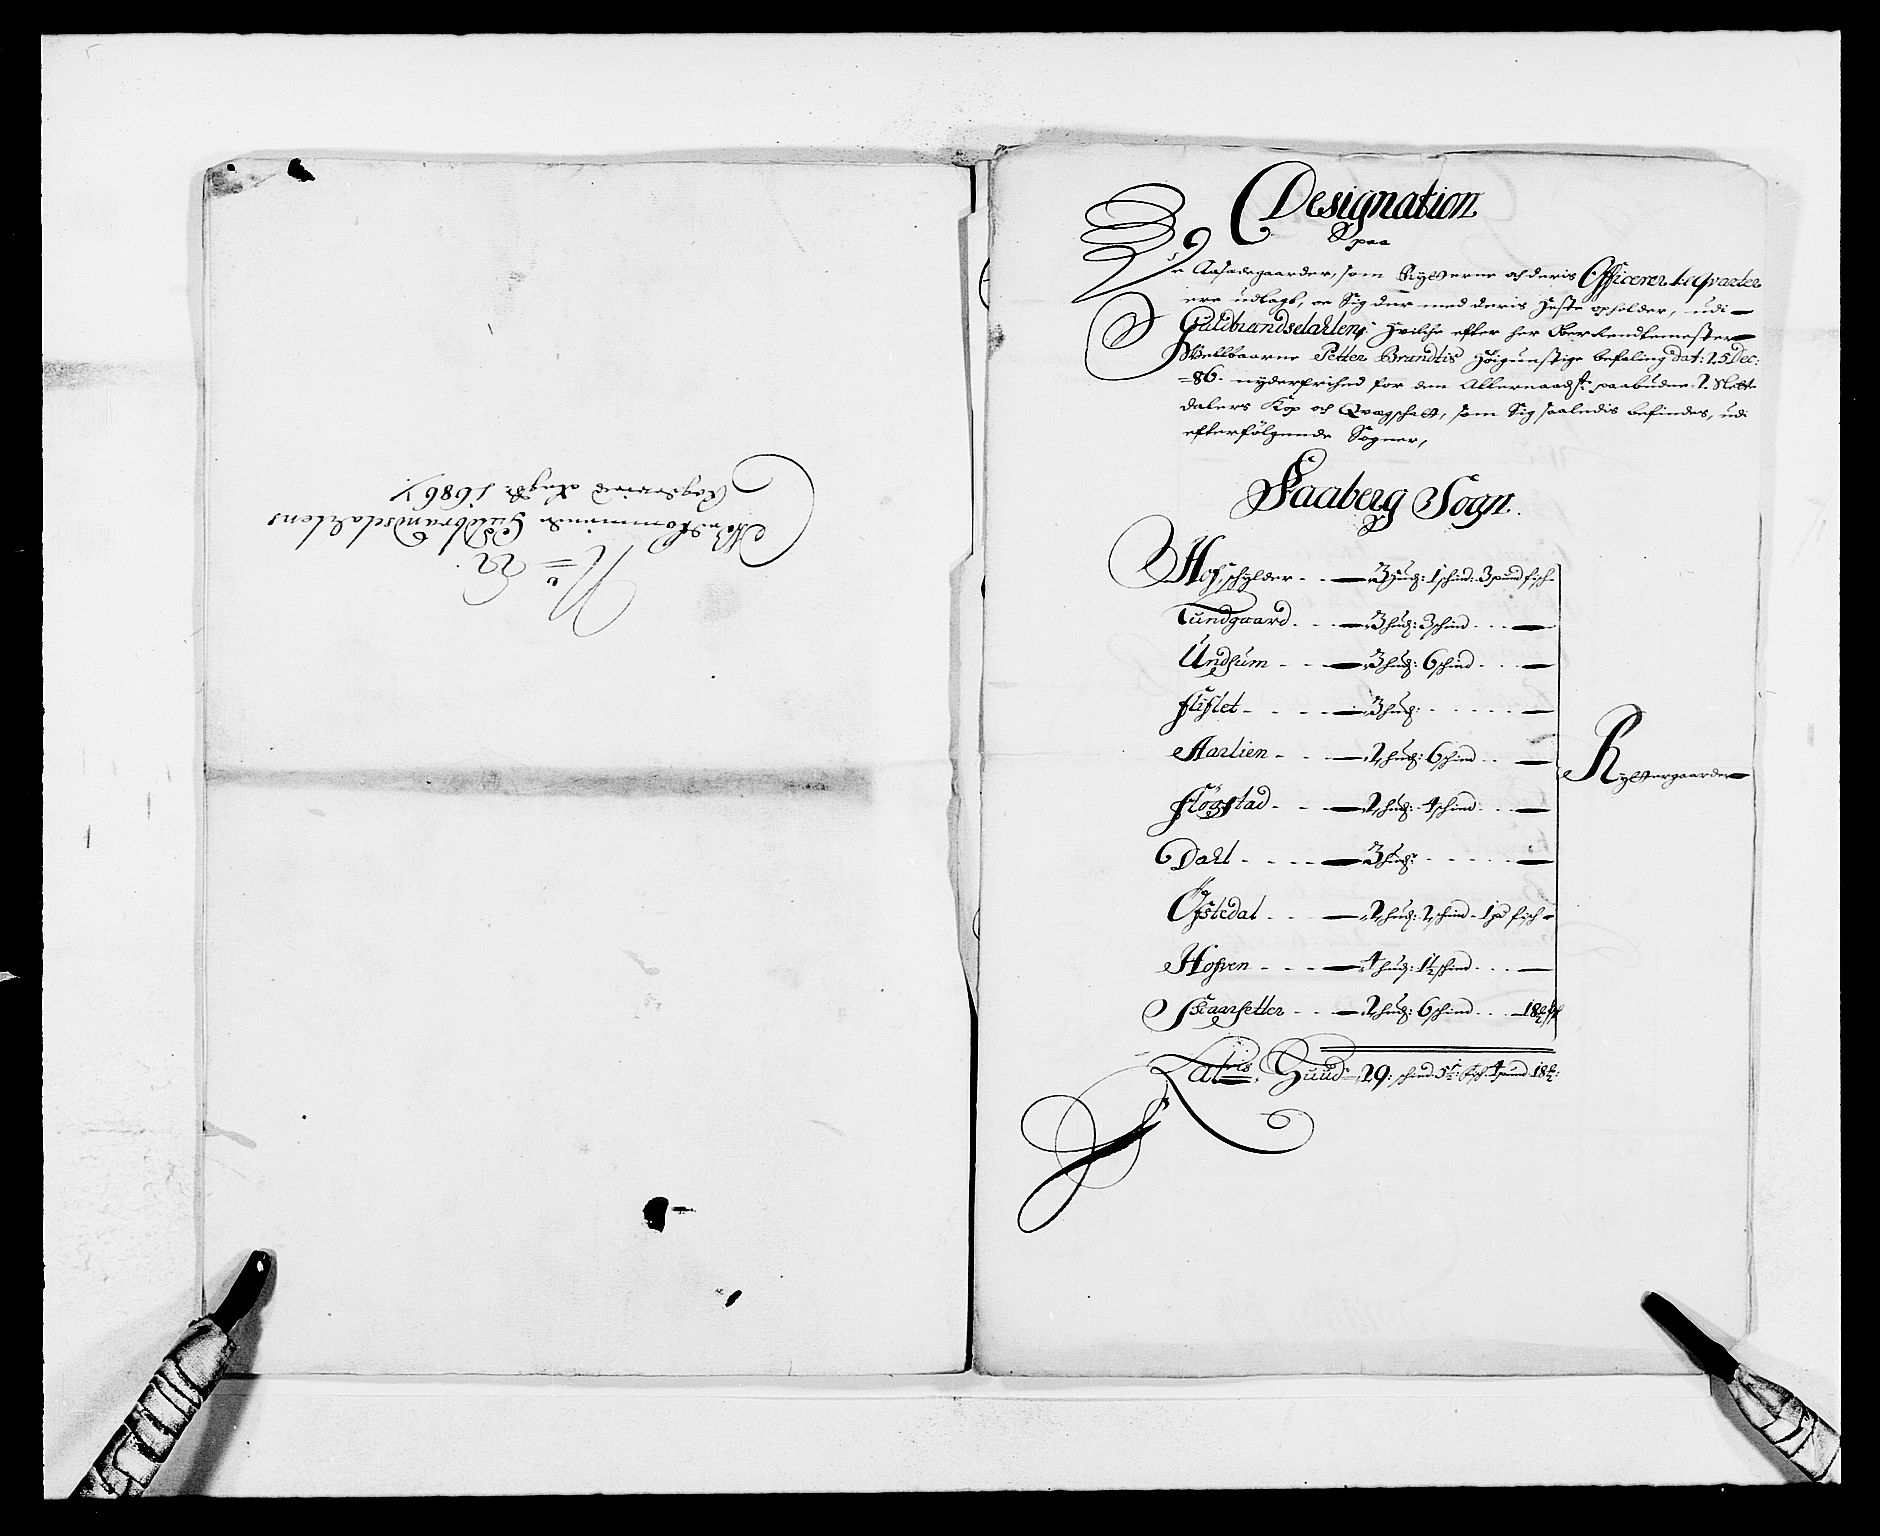 No 22.
Vedkommende Guldbrandsdahlens
Regnschab 1686
Designation
paa
De Aasædegaarder, som Rytterne och deris Officerer til qvarter
ere udlagt, oc Sig der med deris Heste opholder, udi
Guldbrandsdahlen, Hvilche efter her Ober Rendtemester
Wellbaarne Petter Brandtis Höigunstige befaling dat: 25 Dec:
86. nyder frihed for dem Allernaadst: paabudne 2 Slette
dalers Kop och Qvægschatt, som Sig saaledis befindes, udi
efterfölgende Sogner,
Faaberg Sogn.
Hof, schylder - - 3 hud: 1 schind: 3 pund fisch
Tundgaard - - 3 hud: 3 schind - -
Undsum - - 3 hud: 6 schind - -
Flifslet - - 3 hud: - -
Aarlien - - 2 hud: 6 schind - -
Flogstad - - 2 hud: 4 schind - -
Dahl - - 3 hud: - -
Öfstedal - - 2 hud: 2 schind - 1 pd fisch
Hofven - - 4 hud: 1½ schind - -
Skaarsetter - - 2 hud: 6 schind - - 18
Ryttergaarder
Latris, Huud 29: schind 5½: fisch 4 pund 18